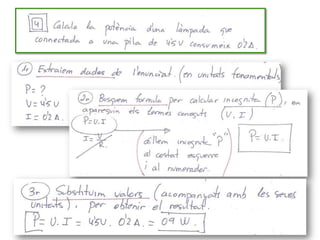 4 Calcula la potència d'una làmpada que
connectada a una pila de 4'5V consumeix 0'2A.
1r Extraiem dades de l'enunciat. (en unitats fonamentals)
P= ?
V= 4'5V
I= 0'2A.
2n Busquem fórmula per calcular incognita (P), on
apareguin els termes coneguts (V, I)
P=V.I
I= V/R
aïllem incognita "P"
al costat esquerre
i al numerador.
P=V.I.
3r Substituïm valors (acompanyats amb les seves
unitats), per obtenir el resultat.
P= V.I = 4'5V. 0'2A. = 0'9 W.